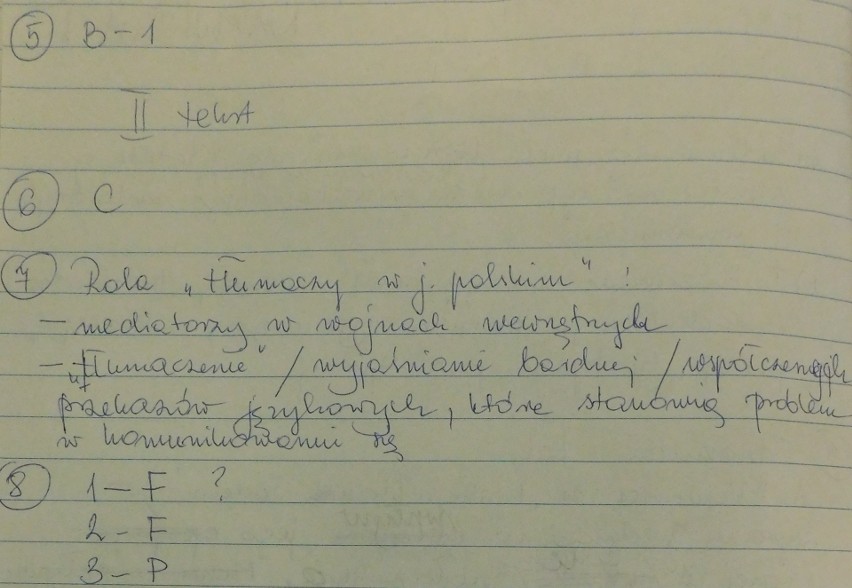 5 B - 1
II tekst
6 C
7 Rola „tłumaczy w j. polskim" :
- mediatorzy w wojnach wewnętrznych
- „tłumaczenie" / wyjaśnianie każdej / współczesnych
przekazów językowych, które stanowią problem
w komunikowaniu się
8 1 - F ?
2 - F
3 - P